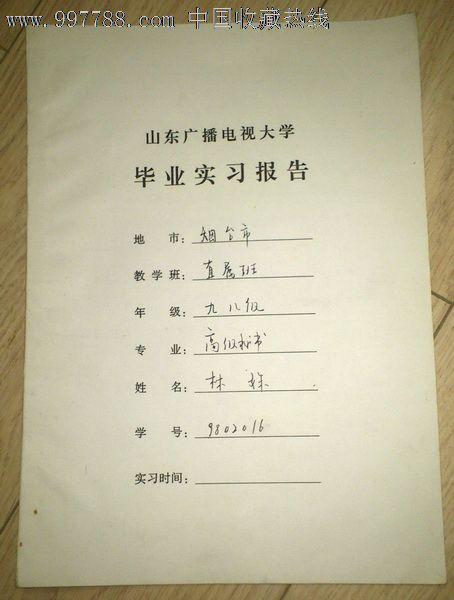 www.997788.com 中国收藏热线
山东广播电视大学
毕业实习报告
地 市: 烟台市
教学班: 直属班
年 级: 九八级
专 业: 高级秘书
姓 名: 林
学 号: 9802016
实习时间: